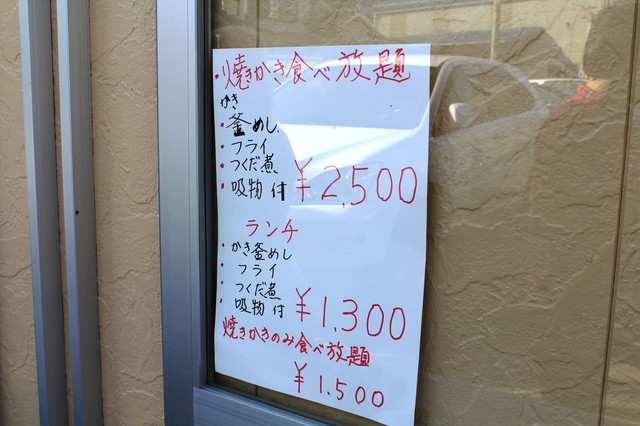 ・焼きかき食べ放題
かき
・釜めし
・フライ
・つくだ煮
・吸物付 ¥2,500
ランチ
・かき釜めし
・フライ
・つくだ煮
・吸物付 ¥1,300
焼きかきのみ食べ放題
¥1.500